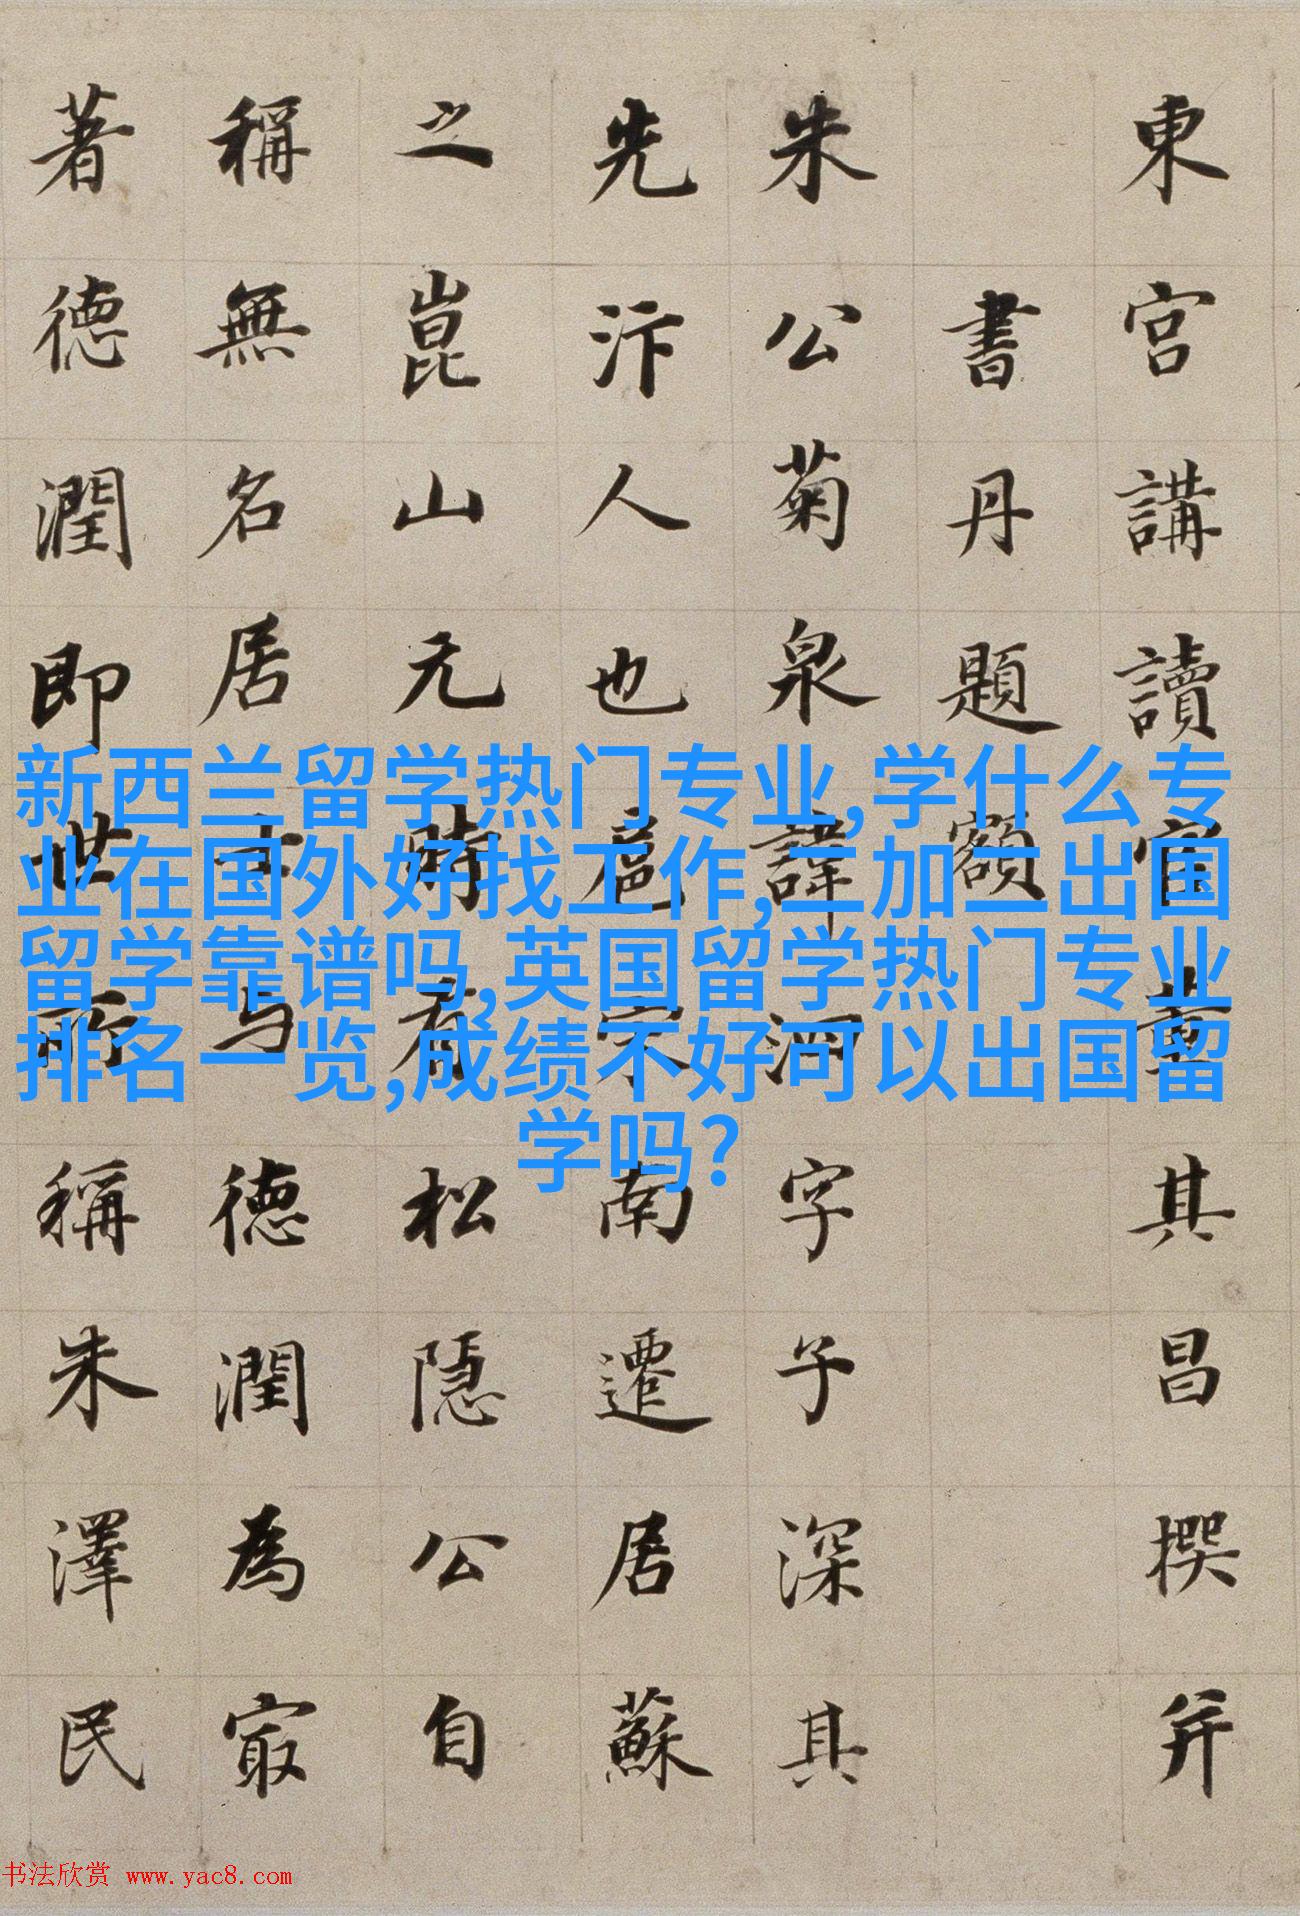 東宮講讀官董其昌撰并
書丹題額
朱公菊泉諱泗字子深其
先汴人也扈宋南遷居蘇
之崑山元時有松隱公自
稱無名居士与德潤為㝡
著德潤即世所稱朱澤民
新西兰留学热门专业,学什么专
业在国外好找工作,二加二出国
留学靠谱吗,英国留学热门专业
排名一览,成绩不好可以出国留
学吗?
书法欣赏 www.yac8.com